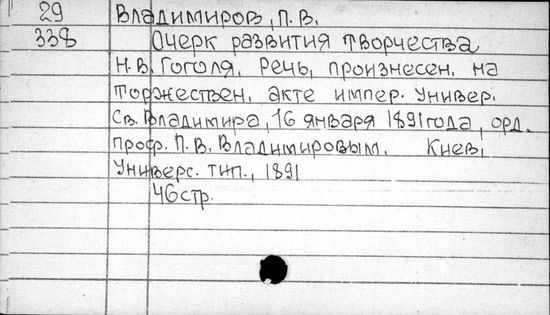 29 Владимиров, П. В.
338 Очерк развития творчества
Н.В. Гоголя. Речь, произнесен. на
торжествен. акте импер. Универ.
Св. Владимира, 16 января 1891 года, орд.
проф. П. В. Владимировым. Киев,
Универс. тип., 1891
46 стр.